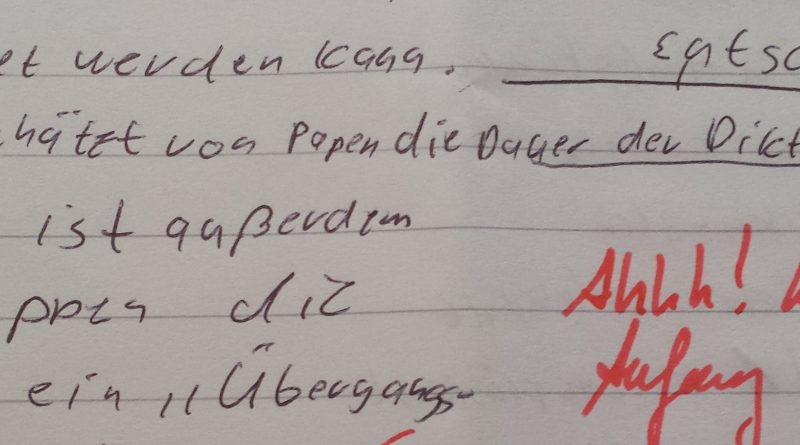 et werden kann. Entsc
hätzt von Papen die Dauer der Dikt
ist außerdem
Ahhh!
ppen die
Anfang
ein „Übergangs-